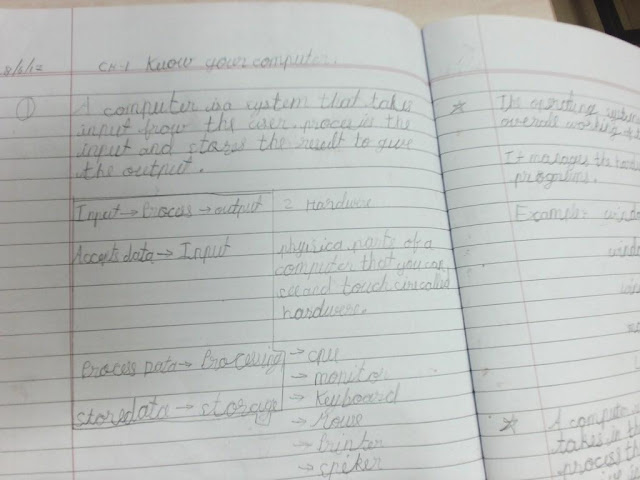 CH-1 Know your computer.
①
A computer is a system that takes
input from the user. process the
input and stores the result to give
the output.
Input → Process → output
Accepts data → Input
Process Data → Processing
store data → storage
2 Hardware
physica parts of a
computer that you can
see and touch are called
hardware.
→ cpu
→ monitor
→ Keyboard
→ Mouse
→ Printer
→ spiker
* The operating system
overall working of
It manages the
programs.
Example:
* A computer
takes in the
process